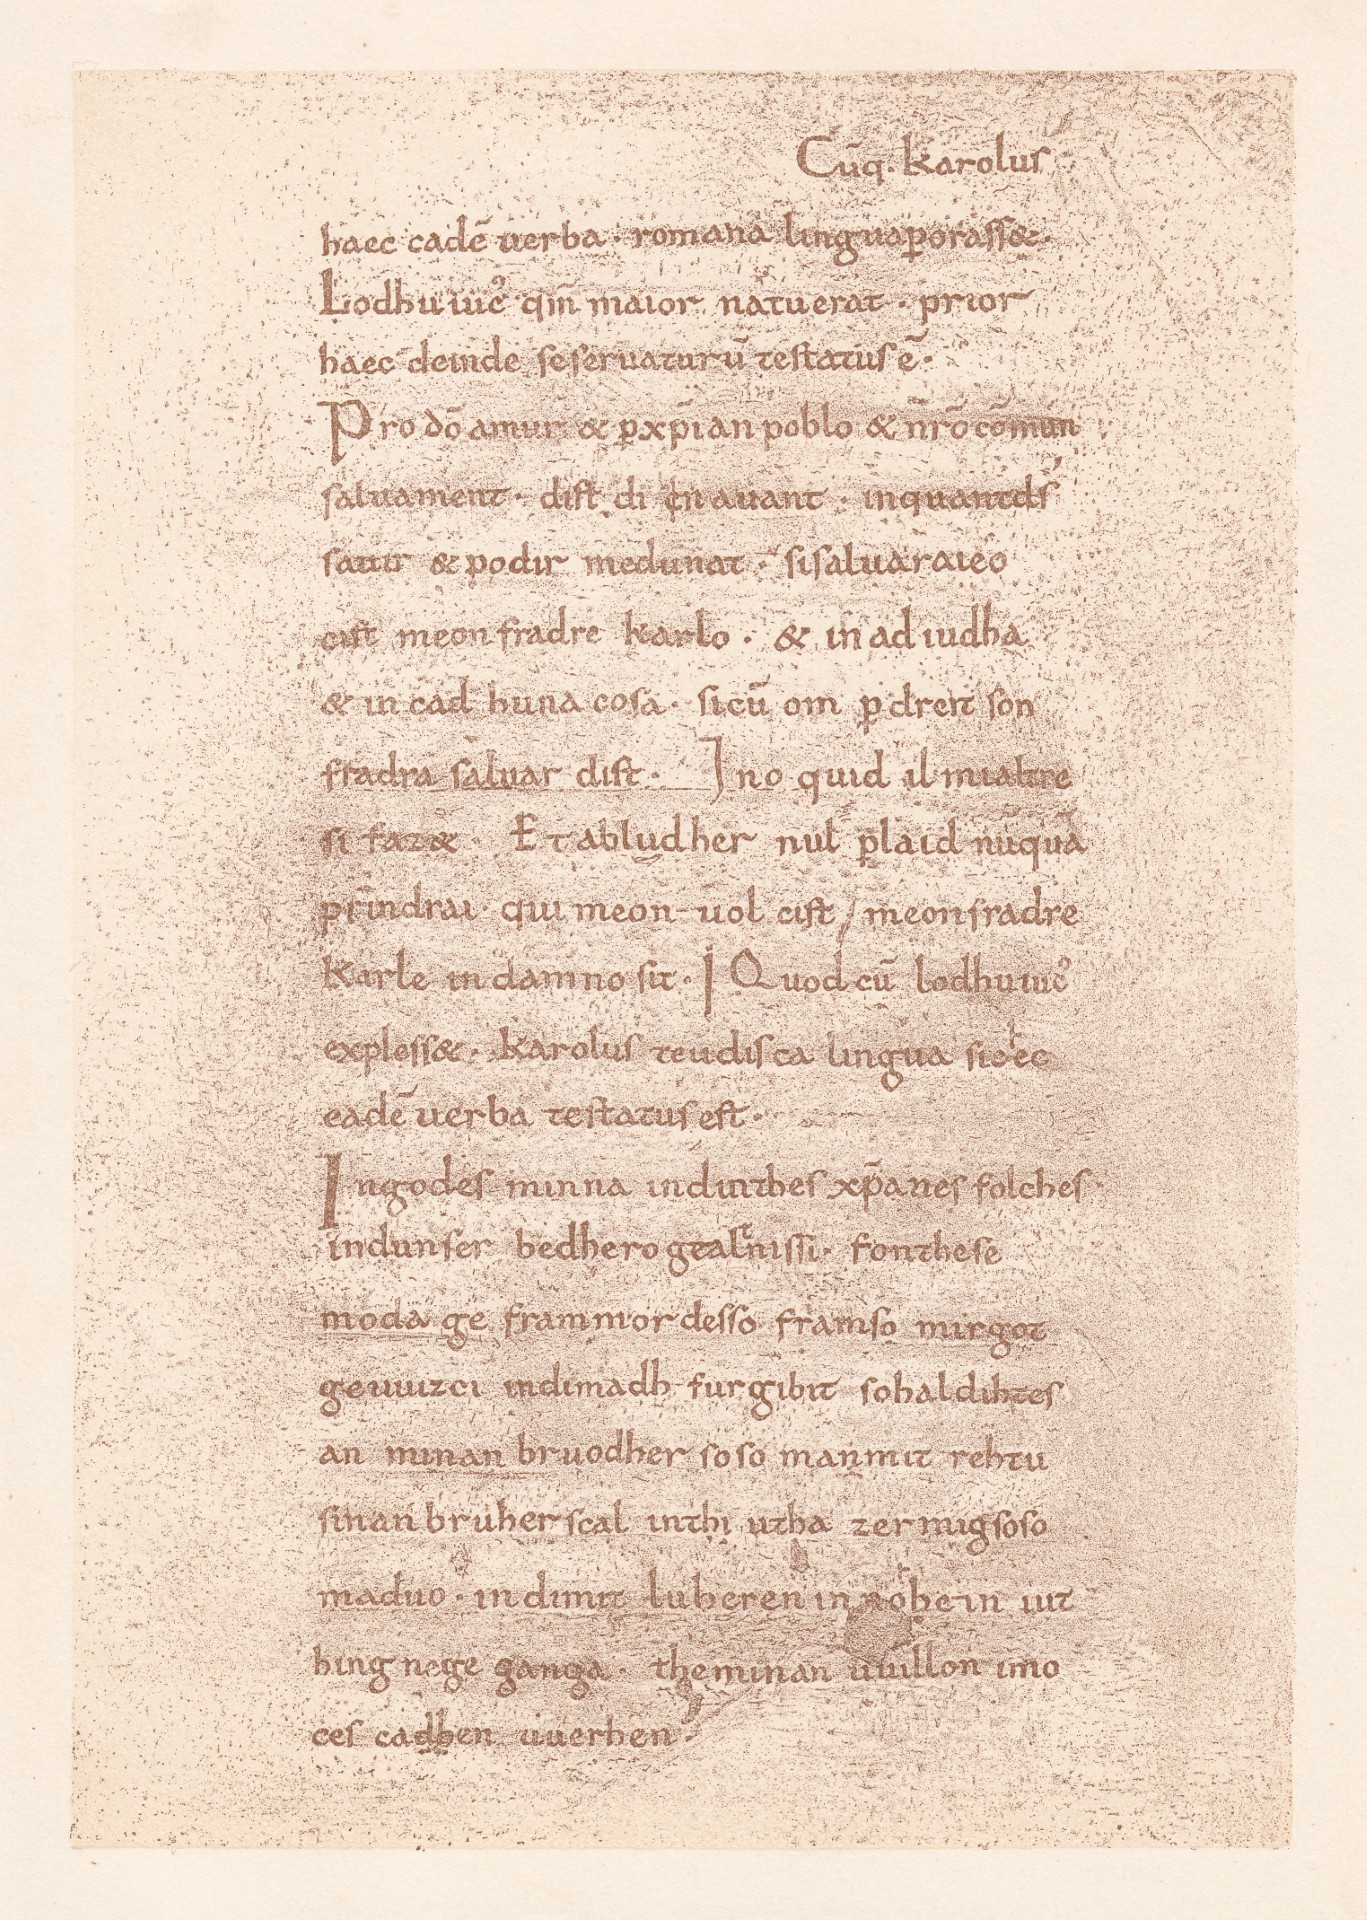 Cūq · karolus
haec eadē uerba · romana linguaꝑorass& ·
Lodhuuıc᷒ qm̄ maior natuerat · prior
haec deinde seseruaturū testatus ē ·
Pro dō amur & ꝑ xp̄ian poblo & nr̄o cōmun
saluament · dist di en auant · inquantds
sauir & podir medunat · sisaluaraieo
cist meon fradre karlo · & in ad iudha
& in cad huna cosa · sicū om ꝑ dreit son
fradra saluar dist · Ino quid il mialtre
si faz& · Et abludher nul plaid nūquā
prindrai · qui meon uol cist / meonfradre
karle in damno sit · | Quod cū lodhuuıc᷒
expless& · karolus teudisca lingua sic ec
eadē uerba testatus est ·
Ingodes minna induithes xp̄anes folches
indunser bedhero gealtnissi · fonthese
moda ge frammordesso framso mirgot
geuuizci indimadh furgibit sohaldihtes
an minan bruodher soso manmit rehtu
sinan bruher scal inthi utha zermigsoso
maduo · indimit luheren in nohein iut
hing nege ganga · theminan uuillon imo
ces cadhen uuerhen ·